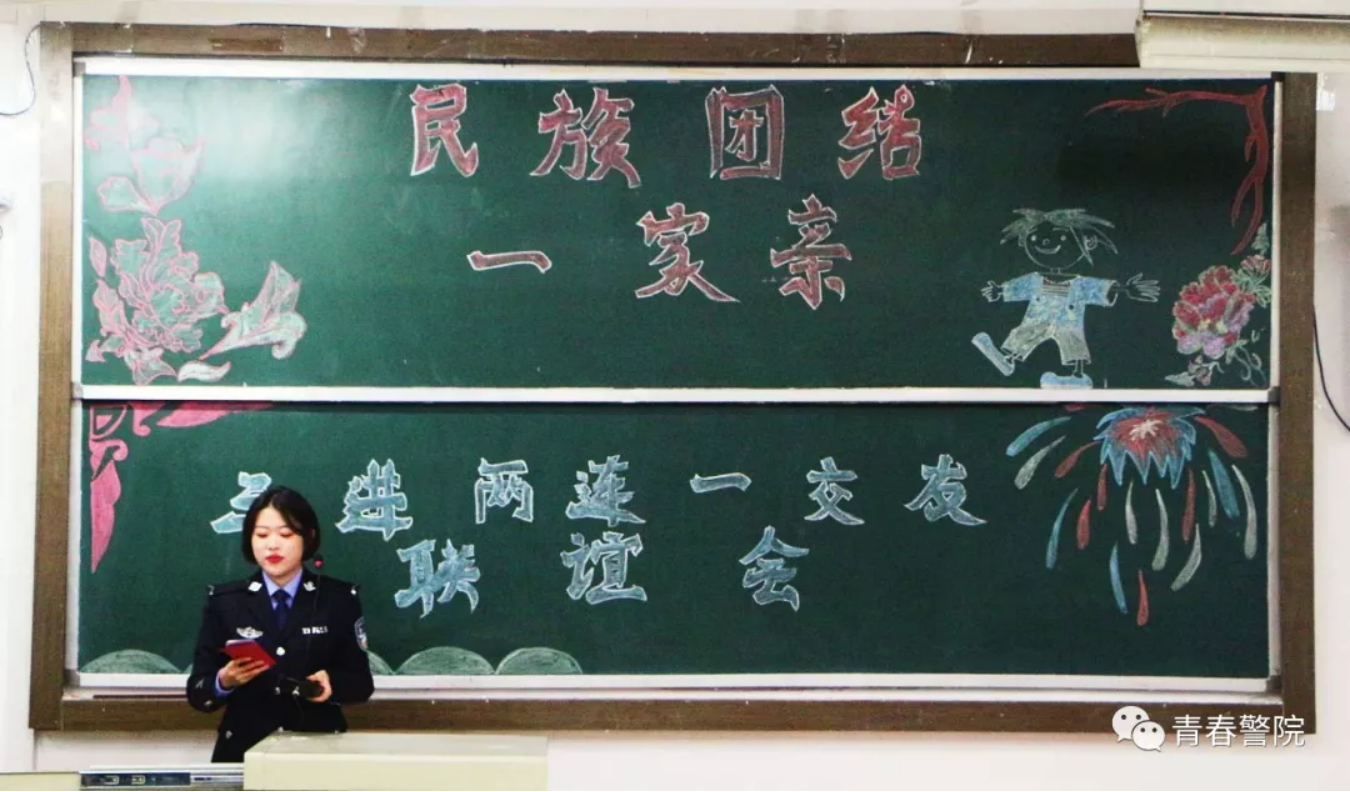 民族团结
一家亲
三进两连一交友
联谊会
青春警院